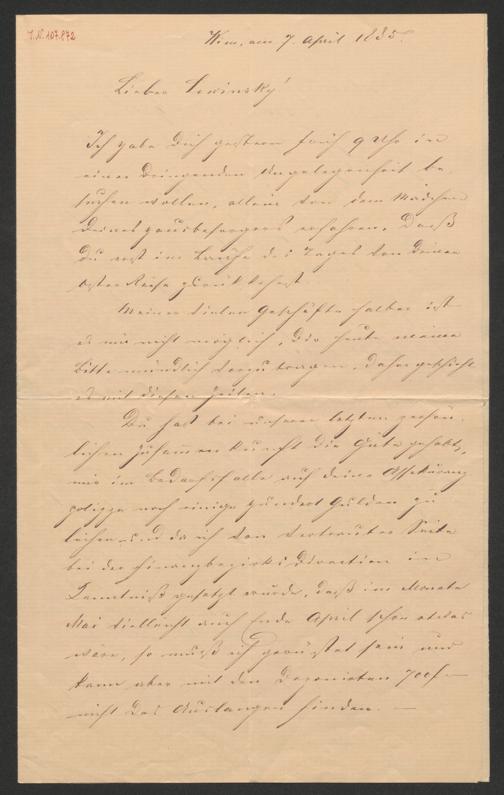 J.N. 107.872
Wien, am 7. April 1885.
Lieber Lewinsky!
Ich habe Dich gestern früh 9 Uhr in
einer dringenden Angelegenheit be-
suchen wollen, allein von dem Mädchen
Deines Hausbesorgers erfahren, daß
Du erst im Laufe des Tages von Deiner
Oster Reise zurückkehrst.
Meiner vielen Geschäfte halber ist
es mir nicht möglich, Dir heute meine
Bitte mündlich vorzutragen, daher geschieht
es mit diesen Zeilen.
Du hast bei unserer letzten persön-
lichen Zusammenkunft die Güte gehabt,
mir im Bedarfsfalle auf deine Assekuranz
polizze noch einige hundert Gulden zu
leihen und da ich von vertrauter Seite
bei der Finanzbezirks Direction in
Kenntniß gesetzt wurde, daß im Monate
Mai vielleicht auch Ende April schon etwas
wäre, so muß ich gerüstet sein und
kann aber mit den Deponirten 700 f –
nicht das Auslangen finden. –